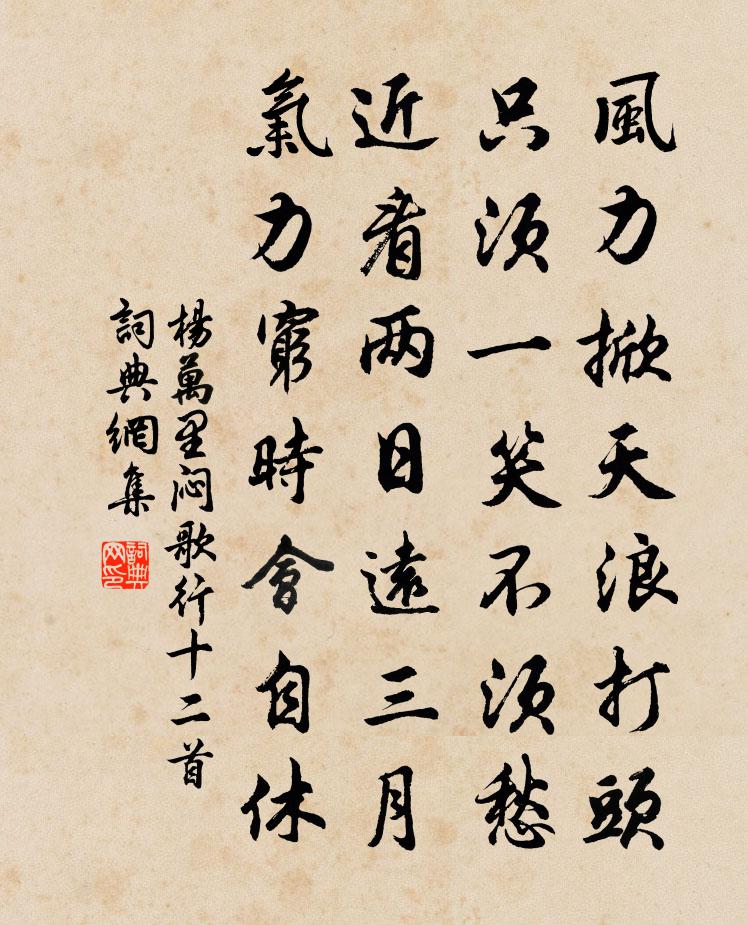 風力掀天浪打頭
只須一笑不須愁
近看两日遠三月
氣力窮時會自休
楊萬里悶歌行十二首
詞典網集
詞典网印